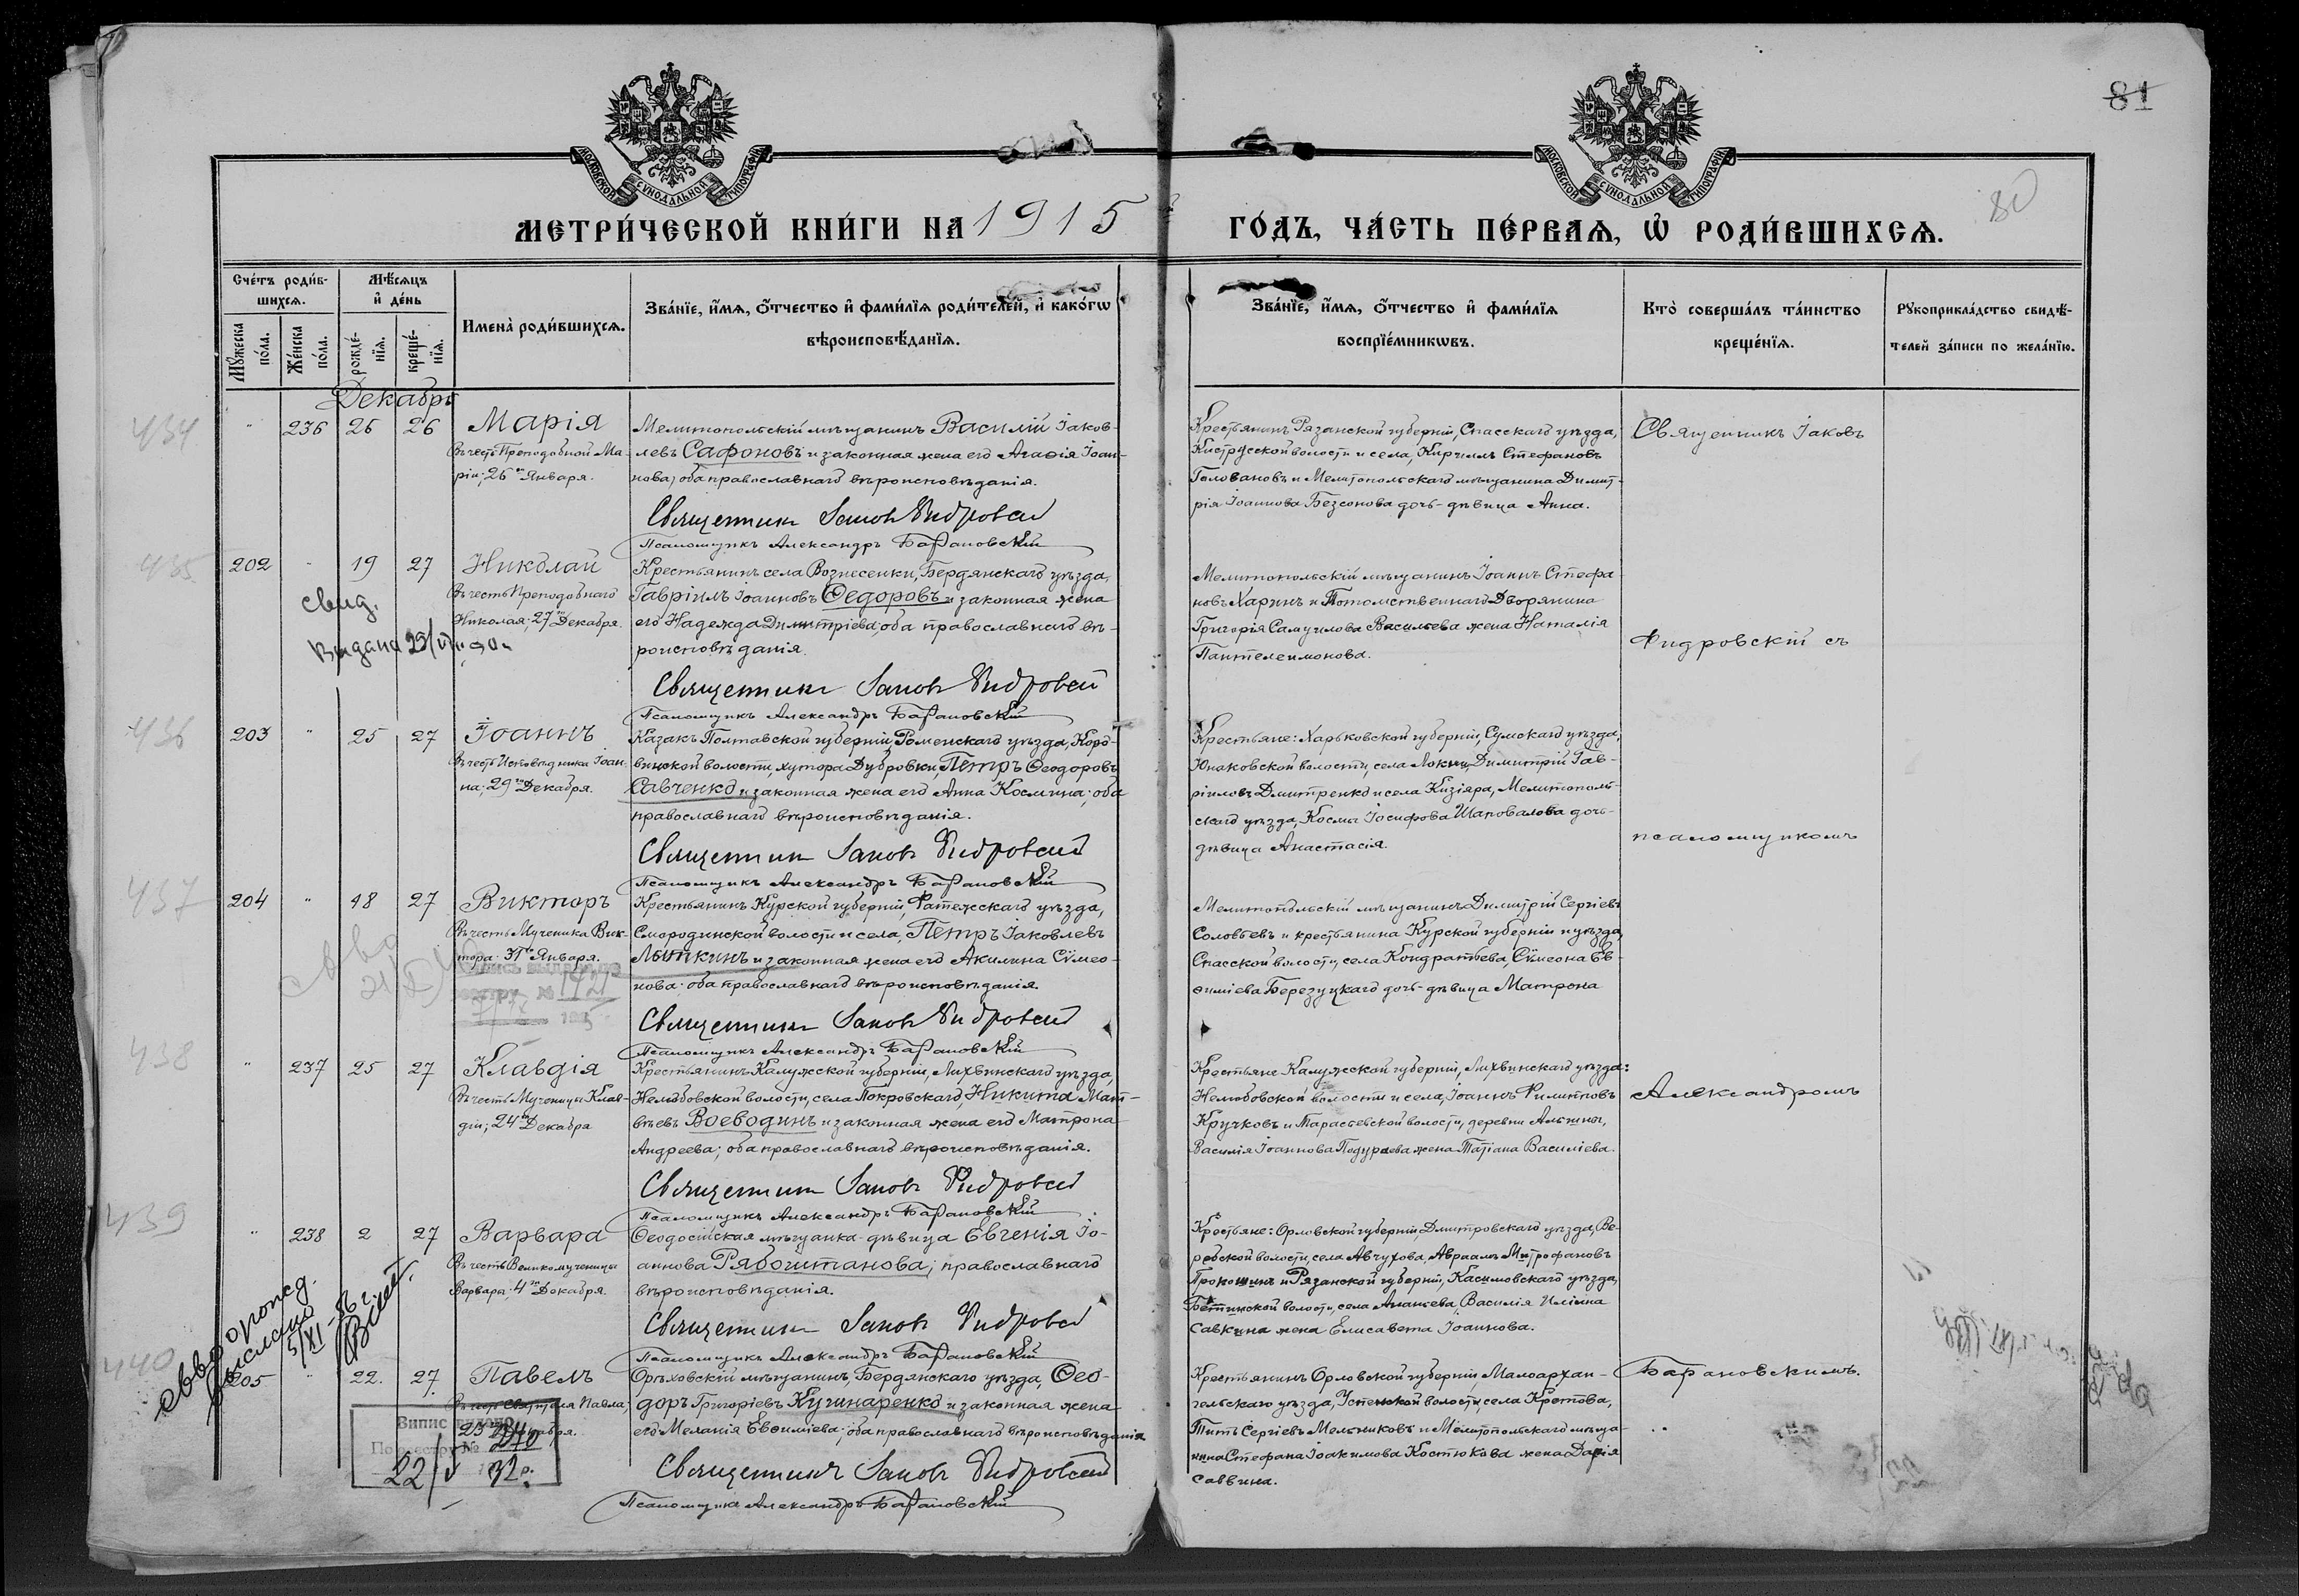 81
80
МОСКОВСКОЙ СѴНОДАЛЬНОЙ ТИПОГРАФІИ
МОСКОВСКОЙ СѴНОДАЛЬНОЙ ТИПОГРАФІИ
МЕТРИ́ЧЕСКОЙ КНИ́ГИ НА 1915
ГО́ДЪ, ЧА́СТЬ ПЕ́РВАѦ, Ѡ҆ РОДИ́ВШИХСѦ.
Сче́тъ роди́в-
шихсѧ.
Мꙋ́жеска по́ла.
Же́нска по́ла.
Мѣ́сѧцъ
и҆ де́нь
рожде́-
нїѧ.
креще́-
нїѧ.
Имена̀ роди́вшихсѧ.
Зва́нїе, и҆́мѧ, ѻ҆́тчество и҆ фами́лїѧ роди́телей, и҆ како́гѡ
вѣроисповѣ́данїѧ.
Зва́нїе, и҆́мѧ, ѻ҆́тчество и҆ фами́лїѧ
воспрїе́мникѡвъ.
Кто̀ соверша́лъ та́инство
креще́нїѧ.
Рꙋкоприкла́дство свидѣ́-
телей за́писи по жела́нїю.
Декабрь
434
" 236 26 26 Марія
Въ честь Преподобной Ма-
ріи; 26го Января.
Мелитопольскій мѣщанинъ Василій Іаков-
левъ Сафоновъ и законная жена его Агаѳія Іоан-
нова; оба православнаго вѣроисповѣданія.
Священникъ Іаковъ Фидровскій
Псаломщикъ Александръ Барановскій
Крестьянинъ Рязанской губерніи, Спасскаго уѣзда,
Киструсской волости и села, Кириллъ Стефановъ
Головановъ и Мелитопольскаго мѣщанина Димит-
рія Іоаннова Безсонова дочь-дѣвица Анна.
Священникъ Іаковъ
435
202 " 19 27 Николай
Въ честь Преподобнаго
Николая; 27го Декабря.
свид.
выдана 29/VII
Крестьянинъ села Вознесенки, Бердянскаго уѣзда,
Гавріилъ Іоанновъ Ѳедоровъ и законная жена
его Надежда Димитріева; оба православнаго вѣ-
роисповѣданія.
Священникъ Іаковъ Фидровскій
Псаломщикъ Александръ Барановскій
Мелитопольскій мѣщанинъ Іоаннъ Стефа-
новъ Харинъ и Потомственнаго Дворянина
Григорія Самуилова Васильева жена Наталія
Пантелеимонова.
Фидровскій съ
436
203 " 25 27 Іоаннъ
Въ честь Исповѣдника Іоан-
на; 29го Декабря.
Казакъ Полтавской губерніи, Роменскаго уѣзда, Коро-
винской волости, хутора Дубровки, Петръ Ѳеодоровъ
Савченко и законная жена его Анна Космина; оба
православнаго вѣроисповѣданія.
Священникъ Іаковъ Фидровскій
Псаломщикъ Александръ Барановскій
Крестьяне: Харьковской губерніи, Сумскаго уѣзда,
Юнаковской волости, села Локни, Димитрій Гав-
ріиловъ Дмитренко и села Кизіяра, Мелитополь-
скаго уѣзда, Космы Іосифова Шаповалова дочь-
дѣвица Анастасія.
псаломщикомъ
437
204 " 18 27 Викторъ
Въ честь Мученика Вик-
тора. 31го Января.
1921
Крестьянинъ Курской губерніи, Фатежскаго уѣзда,
Смородинской волости и села, Петръ Іаковлевъ
Лыткинъ и законная жена его Акилина Сѵмео-
нова; оба православнаго вѣроисповѣданія.
Священникъ Іаковъ Фидровскій
Псаломщикъ Александръ Барановскій
Мелитопольскій мѣщанинъ Димитрій Сергіевъ
Соловьевъ и крестьянина Курской губерніи и уѣзда,
Спасской волости, села Кондратьева, Сѵмеона Ев-
ѳиміева Березуцкаго дочь-дѣвица Матрона
438
" 237 25 27 Клавдія
Въ честь Мученицы Клав-
діи; 24го Декабра
Крестьянинъ Калужской губерніи, Лихвинскаго уѣзда,
Нелюбовской волости, села Покровскаго, Никита Мат-
вѣевъ Воеводинъ и законная жена его Матрона
Андреева; оба православнаго вѣроисповѣданія.
Священникъ Іаковъ Фидровскій
Псаломщикъ Александръ Барановскій
Крестьяне Калужской губерніи, Лихвинскаго уѣзда:
Нелюбовской волости и села, Іоаннъ Филипповъ
Кручковъ и Тарасьевской волости, деревни
Василія Іоаннова Подураева жена Татіана Василіева.
Александромъ
439
" 238 2 27 Варвара
Въ честь Великомученицы
Варвары; 4го Декабря.
Ѳеодосійская мѣщанка-дѣвица Евгенія Іо-
аннова Рябоштанова; православнаго
вѣроисповѣданія.
Священникъ Іаковъ Фидровскій
Псаломщикъ Александръ Барановскій
Крестьяне: Орловской губерніи, Дмитровскаго уѣзда, Ве-
ребской волости, села Авчухова, Авраамъ Митрофановъ
Прокошинъ и Рязанской губерніи, Касимовскаго уѣзда,
Бетинской волости, села Ананьева, Василія Иліина
Савкина жена Елисавета Іоаннова.
440
205 " 22. 27. Павелъ
Въ честь Святителя Павла,
23го Декабря.
Випис видано
По реестру № 240
22/V 32 р.
Орѣховскій мѣщанинъ, Бердянскаго уѣзда, Ѳео-
доръ Григоріевъ Кушнаренко и законная жена
его Меланія Евѳиміева; оба православнаго вѣроисповѣданія
Священникъ Іаковъ Фидровскій
Псаломщикъ Александръ Барановскій
Крестьянинъ Орловской губерніи, Малоархан-
гельскаго уѣзда, Успенской волости, села Кротова,
Титъ Сергіевъ Мельниковъ и Мелитопольскаго мѣща-
нина Стефана Іоакимова Костюкова жена Дарія
Саввина.
Барановскимъ.